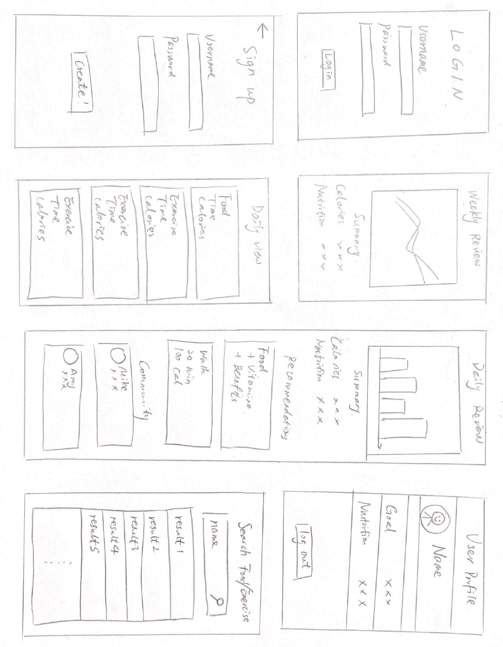 LOGIN
Username
Password
Login
Weekly Review
Summary
Calories xxx
Nutrition xxx
Daily Review
Summary
Calories xxx
Nutrition xxx
Recommendations
Food
+ Vitamins
+ Benefits
Walk
20 min
100 Cal
Community
Mike
xxx
Amy
xxx
User Profile
Name
Goal xxx
Nutrition xxx
log out
Sign up
Username
Password
Create!
Daily view
Food
Time
Calories
Exercise
Time
Calories
Exercise
Time
Calories
Exercise
Time
Calories
Search Food/Exercise
name
result 1
result 2
result 3
result 4
result 5